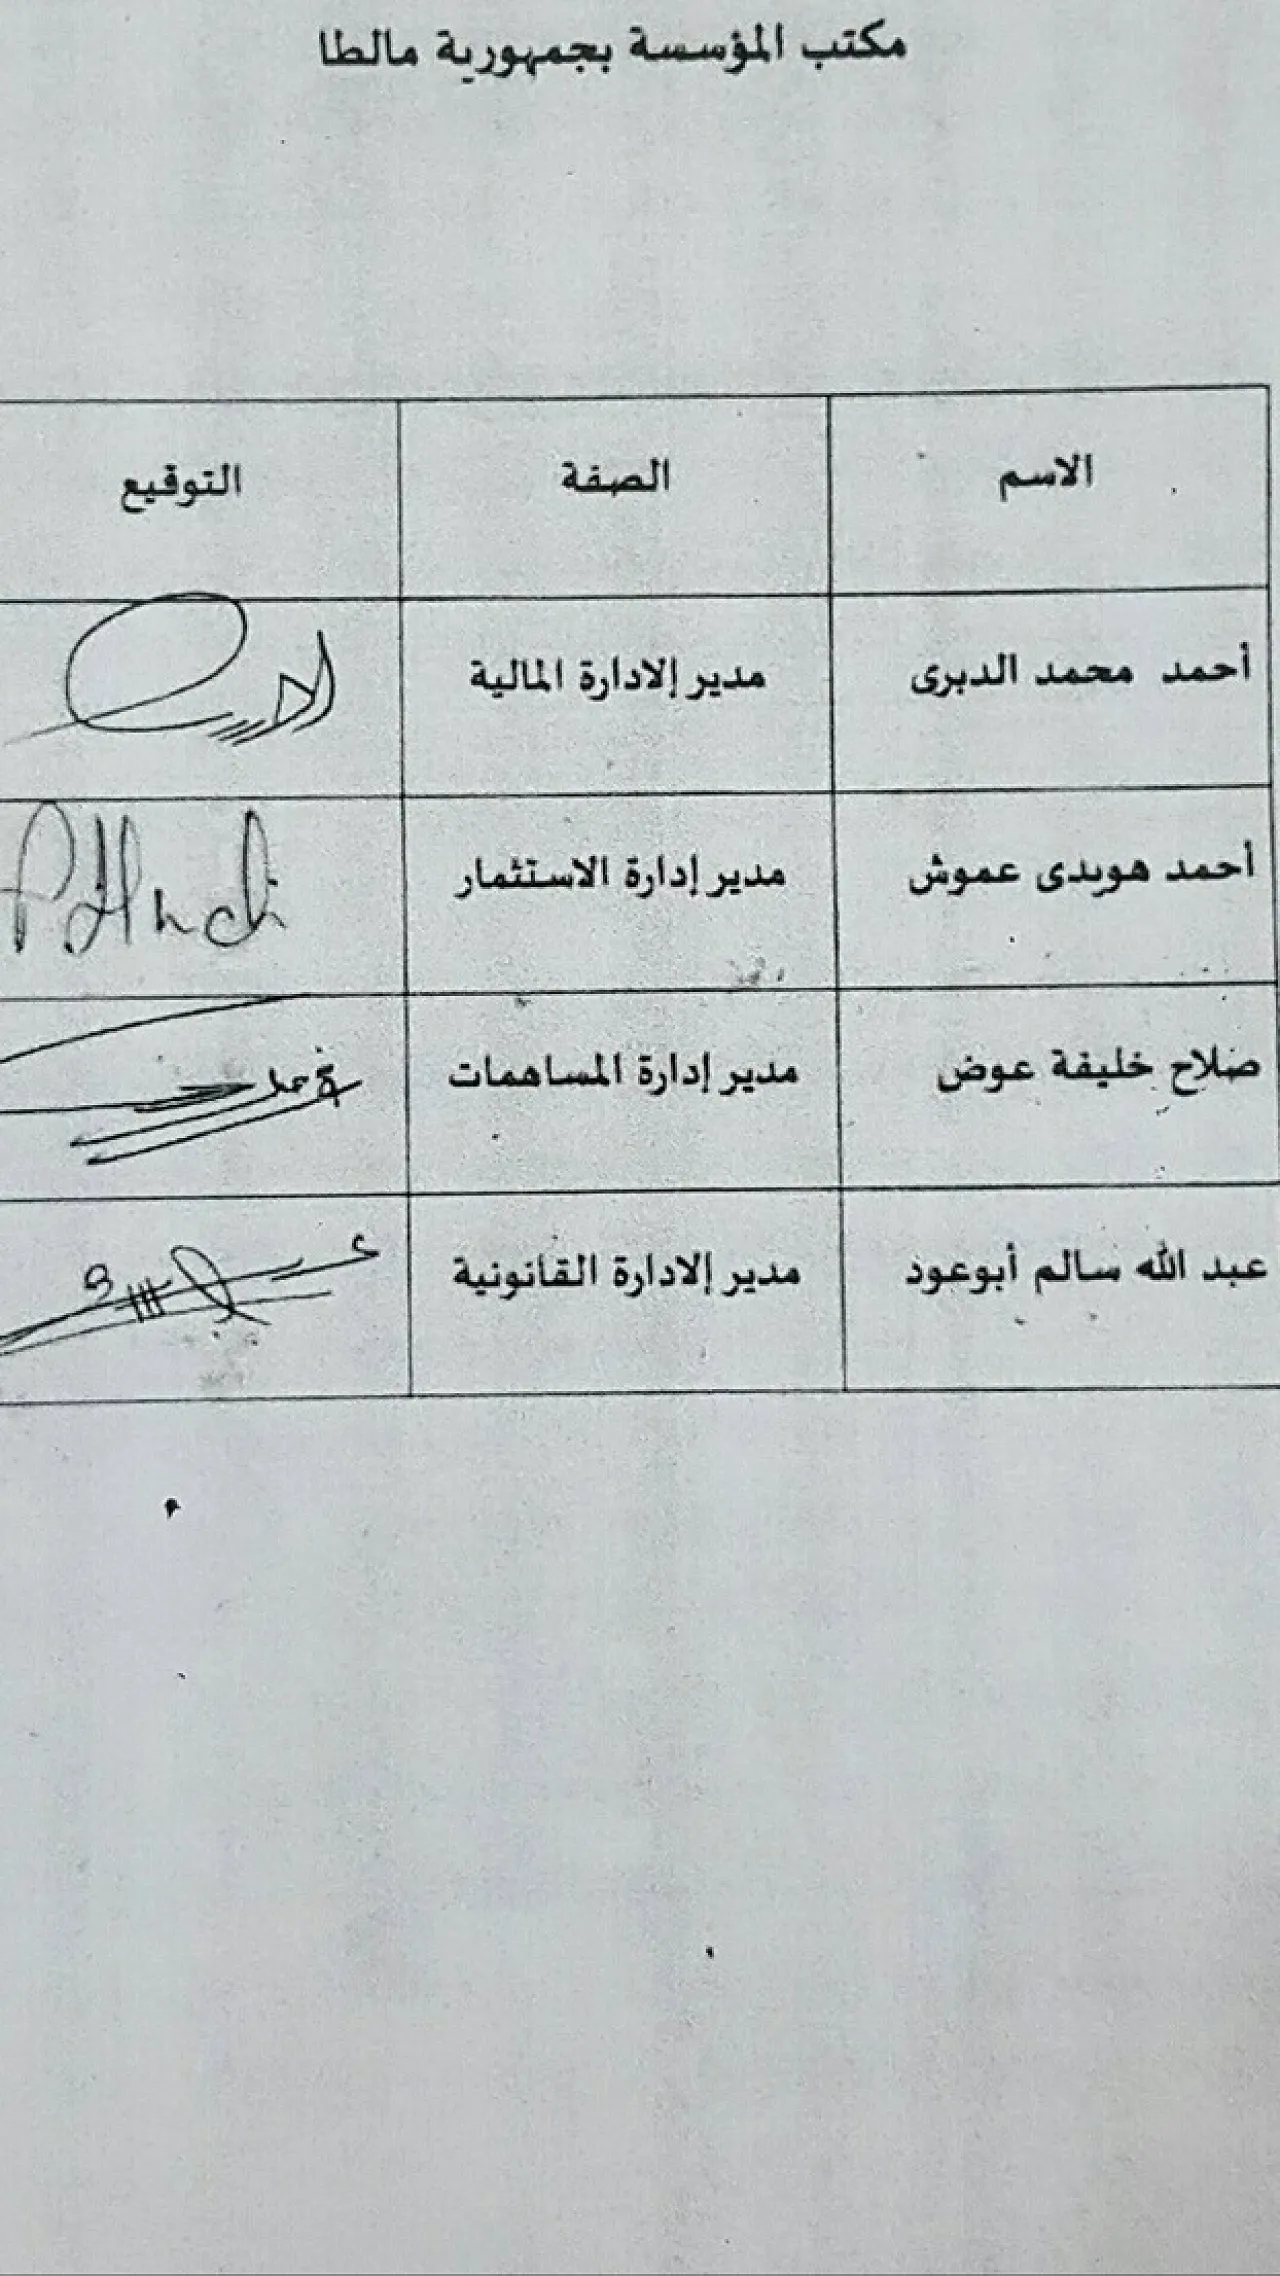 مكتب المؤسسة بجمهورية مالطا
الاسم الصفة التوقيع
أحمد محمد الدبرى مدير إلادارة المالية
أحمد هويدى عموش مدير إدارة الاستثمار
صلاح خليفة عوض مدير إدارة المساهمات
عبد الله سالم أبوعود مدير إلادارة القانونية